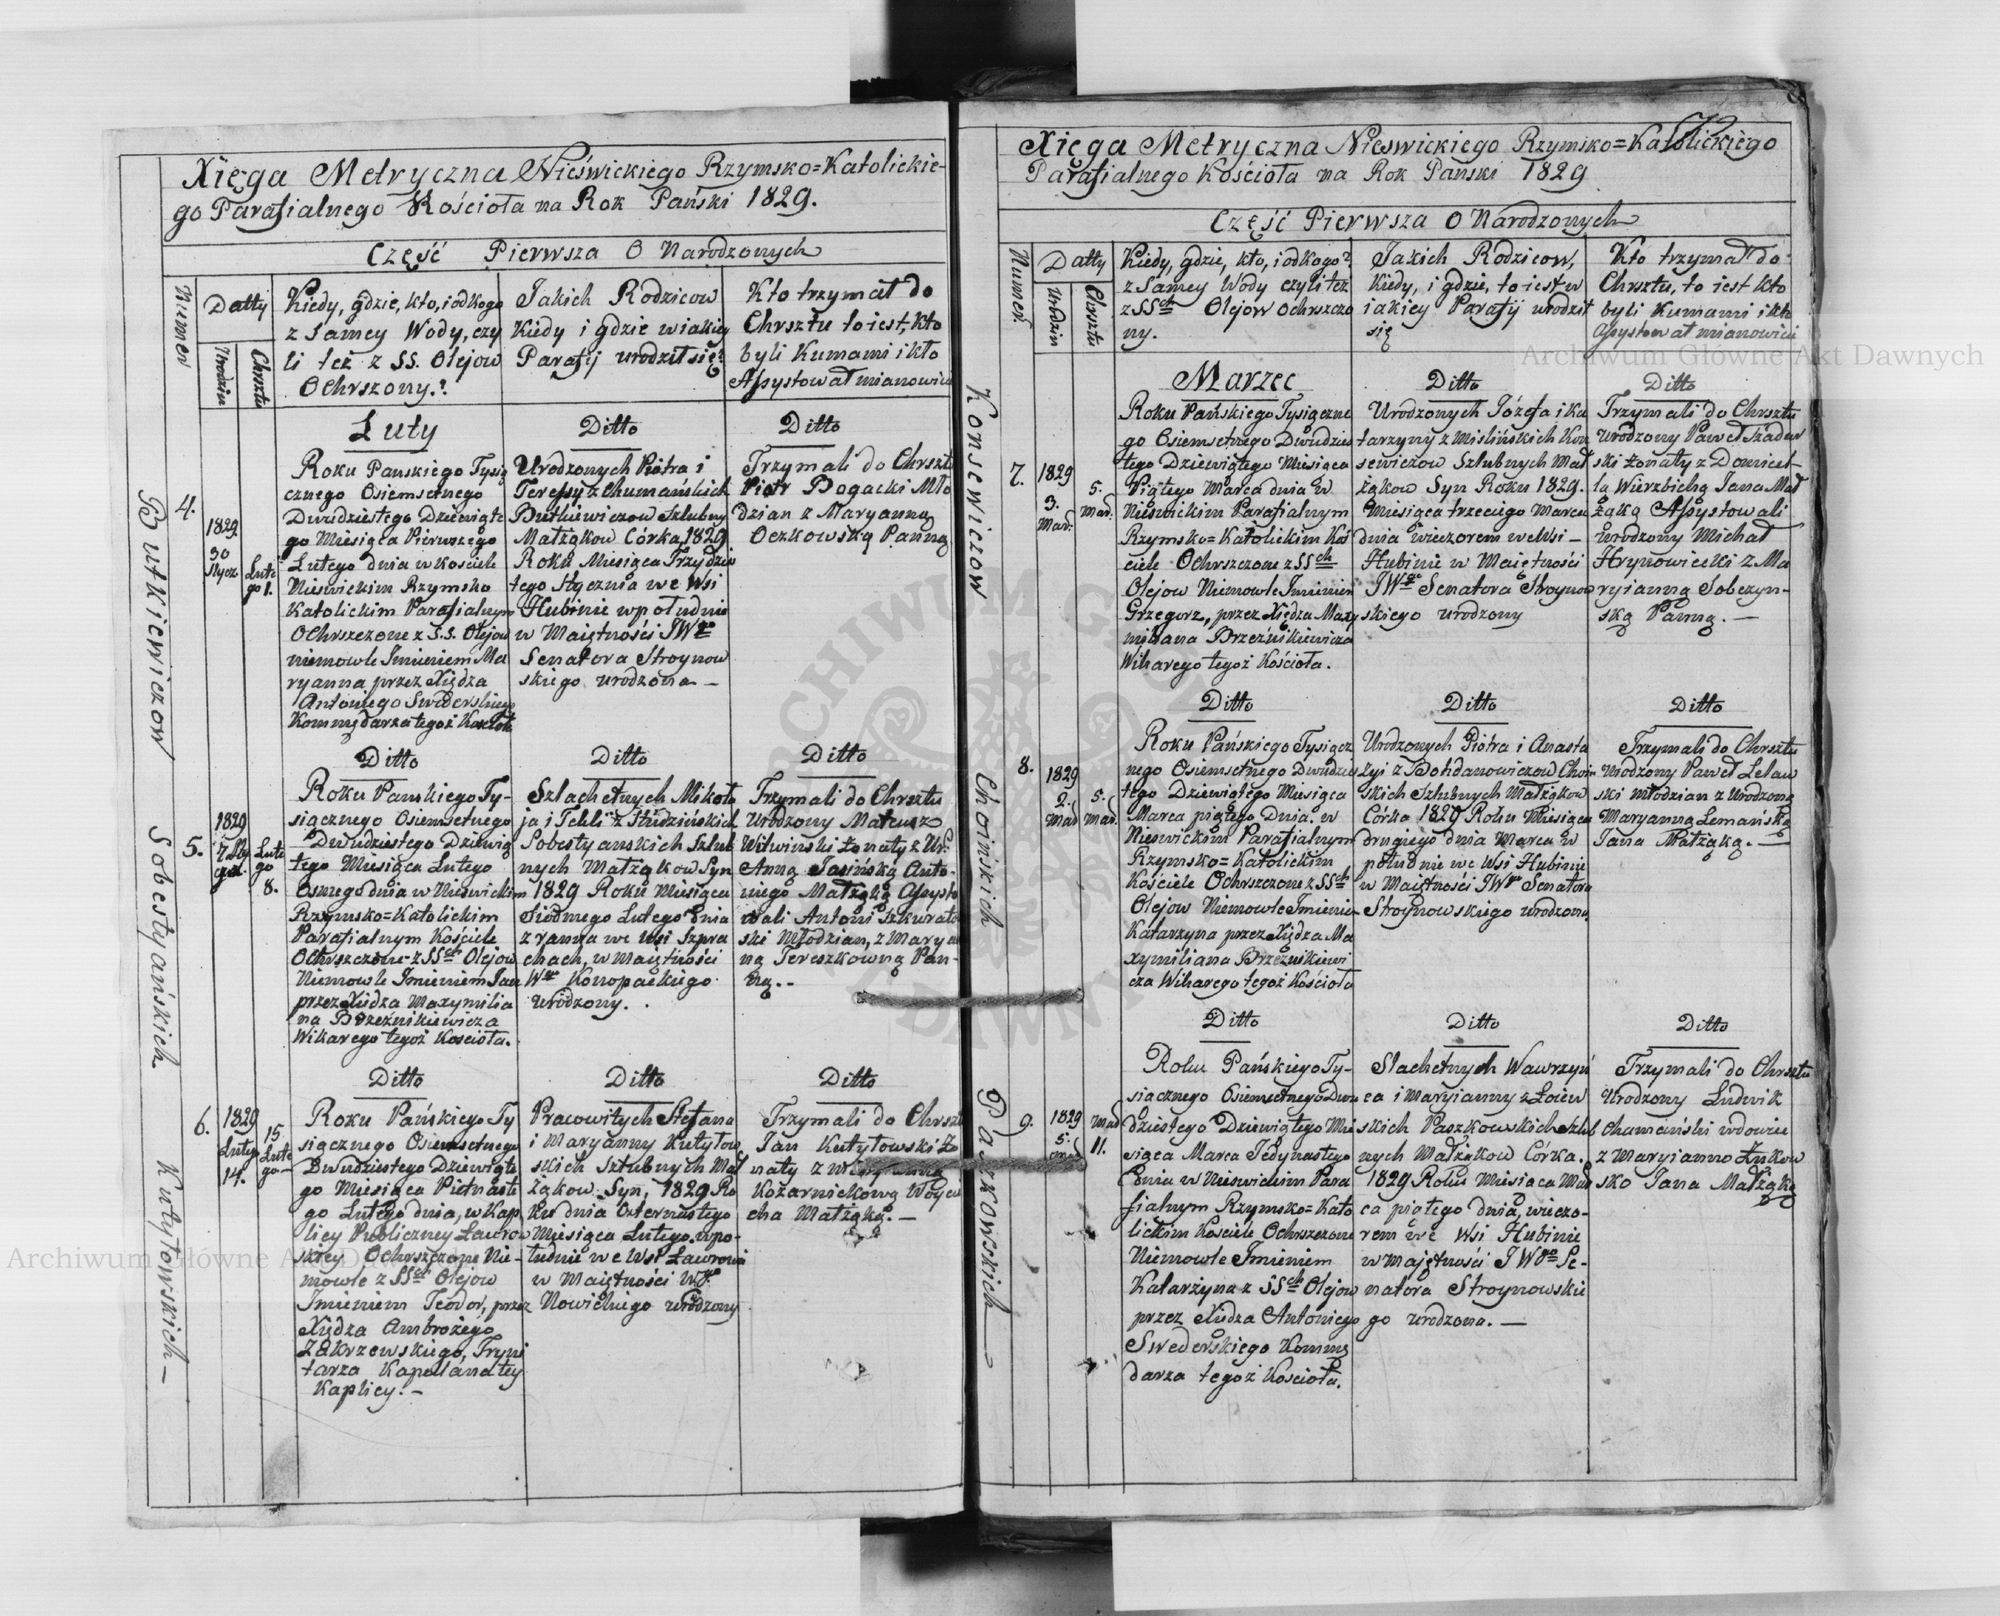 Xięga Metryczna Nieświckiego Rzymsko=Katolickie-
go Parafialnego Kościoła na Rok Pański 1829.
Część Pierwsza O Narodzonych
Numer
Datty
Urodzin
Chrsztu
Kiedy, gdzie, kto, i od kogo
z Samey Wody, czy
li też z SS. Olejow
Ochrszony.?
Jakich Rodzicow
Kiedy i gdzie w iakiey
Parafij urodził się?
Kto trzymał do
Chrsztu to iest, kto
byli Kumami i kto
Assystował mianowicie
Butkiewiczow
Sobestyańskich
Kutyłowskich –
4.
1829.
30
Stycz
Lute
go 1.
Luty
Roku Panskiego Tysią
cznego Osiemsetnego
Dwudziestego Dziewiąte
go Miesiąca Pierwszego
Lutego dnia w Kościele
Nieswickim Rzymsko
Katolickim Parafialnym
Ochrszczone z S.S. Olejow
niemowle Imieniem Ma
ryanna przez Xiędza
Antoniego Swiderskiego
Kommędarza tegoż Kościoła
Ditto
Urodzonych Piotra i
Teressy z Chumańskich
Butkiewiczow Szlubny
Małżąkow Córka, 1829
Roku Miesiąca Trzydzies
tego Stycznia we Wsi
Hubinie w południe
w Maiętności JWgo
Senatora Stroynow
skiego urodzona –
Ditto
Trzymali do Chrsztu
Piotr Bogacki Mło
dzian z Maryanną
Oczkowską Panną
5.
1829
7 Lu
Lute
go
8.
Ditto
Roku Panskiego Ty-
siącznego Osiemsetnego
Dwudziestego Dziewią
tego Miesiąca Lutego
Osmego dnia w Nieswickim
Rzymsko=Katolickim
Parafialnym Kościele
Ochrszczone z SSch Olejow
Niemowle Imieniem Jan
przez Xiędza Maxymilia
na Brzeźnikiewicza
Wikarego tegoż Kościoła.
Ditto
Szlachetnych Mikoła
ja i Tekli z Studzińskich
Sobestyanskich Szlub
nych Małżąkow Syn
1829 Roku Miesiąca
Siodmego Lutego dnia
z ranna we wsi Szpra
chach, w Maiętności
Wgo Konopackiego
urodzony.
Ditto
Trzymali do Chrsztu
Urodzony Mateusz
Witwinski żonaty z Ur.
Anną Jasińską Anto-
niego Małżąką Assysto
wali Antoni Szkurato
ski Młodzian, z Marya
ną Tereszkowną Pan-
ną.-
6.
1829
Lutego
14.
15
Lute
go –
Ditto
Roku Pańskiego Ty
siącznego Osiemsetnego
Dwudziestego Dziewiąte
go Miesiąca Pietnaste
go Lutego dnia, w Kap
licy Publiczney Ławrow
skiey Ochrszczone Nie-
mowle z SSch Olejow
Imieniem Teodor, przez
Xiędza Ambrożego
Zakrzewskiego, Tryni
tarza Kapellana tey
Kaplicy. –
Ditto
Pracowitych Stefana
i Maryanny Kutyłow
skich Szlubnych Mał
żąkow Syn, 1829 Ro
ku dnia Czternastego
Miesiąca Lutego w po-
łudnie we Wsi Ławrowie
w Maiętności Wgo
Nowickiego urodzony
Ditto
Trzymali do Chrszt
Jan Kutyłowski Żo
naty z
Kozarnickową Woycie
cha Małżąką. –
Xięga Metryczna Nieswickiego Rzymsko=Katolickiego
Parafialnego Kościoła na Rok Pański 1829
Część Pierwsza O Narodzonych
Numer
Datty
Urodzin
Chrsztu
Kiedy, gdzie, kto, i od kogo?
z Samey Wody czyli też
z SSch Olejow Ochrszczo
ny.
Jakich Rodzicow,
Kiedy, i gdzie, to iest w
iakiey Parafij urodził
się
Kto trzymał do
Chrsztu, to iest kto
byli Kumami i kto
Assystował mianowicie
Konsewiczow
Choińskich
Paszkowskich –
7.
1829
3.
Mar.
5.
Mar.
Marzec
Roku Pańskiego Tysiączne
go Osiemsetnego Dwudzies
tego Dziewiątego Miesiąca
Piątego Marca dnia w
Nieswickim Parafialnym
Rzymsko=Katolickim Koś
ciele Ochrszczone z SSch
Olejow Niemowle Imieniem
Grzegorz, przez Xiędza Maxy
miliana Brzeźnikiewicza
Wikarego tegoż Kościoła.
Ditto
Urodzonych Józefa i Ka
tarzyny z Mislińskich Kon
sewiczow Szlubnych Mał
żąkow Syn Roku 1829.
Miesiąca trzeciego Marca
dnia wieczorem we Wsi –
Hubinie w Maiętności
JWgo Senatora Stroynow
skiego urodzony
Ditto
Trzymali do Chrsztu
Urodzony Paweł Szadur
ski żonaty z Domicel-
lą Wierzbicką Jana Mał
żąką Assystowali
Urodzony Michał
Hrynowiecki z Ma
ryianną Sobczyn-
ską Panną. –
8.
1829
2.
Mar
5.
Mar.
Ditto
Roku Pańskiego Tysiącz
nego Osiemsetnego Dwudzies
tego Dziewiątego Miesiąca
Marca piątego Dnia w
Nieswickim Parafialnym
Rzymsko=Katolickim
Kościele Ochrszczone z SSch
Olejow Niemowle Imienie
Katarzyna przez Xiędza Ma
xymiliana Brzeźnikiewi
cza Wikarego tegoż Kościoła
Ditto
Urodzonych Piotra i Anasta
zyi z Bohdanowiczow Choin
skich Szlubnych Małżąkow
Córka 1829 Roku Miesiąca
drugiego dnia Marca w
południe we Wsi Hubinie
w Maiętności JWgo Senatora
Stroynowskiego urodzona
Ditto
Trzymali do Chrsztu
Urodzony Paweł Lelaw
ski Młodzian z Urodzoną
Maryanną Lemańską
Jana Małżąką. –
9.
1829
5.
Mar
Mar
11.
Ditto
Roku Pańskiego Ty-
siącznego Osiemsetnego Dwu
dziestego Dziewiątego Mie
siąca Marca Jedynastego
Dnia w Nieswickim Para
fialnym Rzymsko=Kato
lickim Kościele Ochrszczone
Niemowle Imieniem
Katarzyna z SSch Olejow
przez Xiędza Antoniego
Swederskiego Kommę
darza tegoż Kościoła.
Ditto
Slachetnych Wawrzyń
ca i Maryianny z Łoiew
skich Paszkowskich Szlub
nych Małżąkow Córka.
1829 Roku Miesiąca Mar
ca piątego dnia, wieczo-
rem we Wsi Hubinie
w Majętności JWgo Se-
natora Stroynowskie
go urodzona. –
Ditto
Trzymali do Chrsztu
Urodzony Ludwik
Chamański wdowiec
z Maryianną Żukow
sko Jana Małżąką
Archiwum Główne Akt Dawnych
Archiwum Główne Akt Dawnych